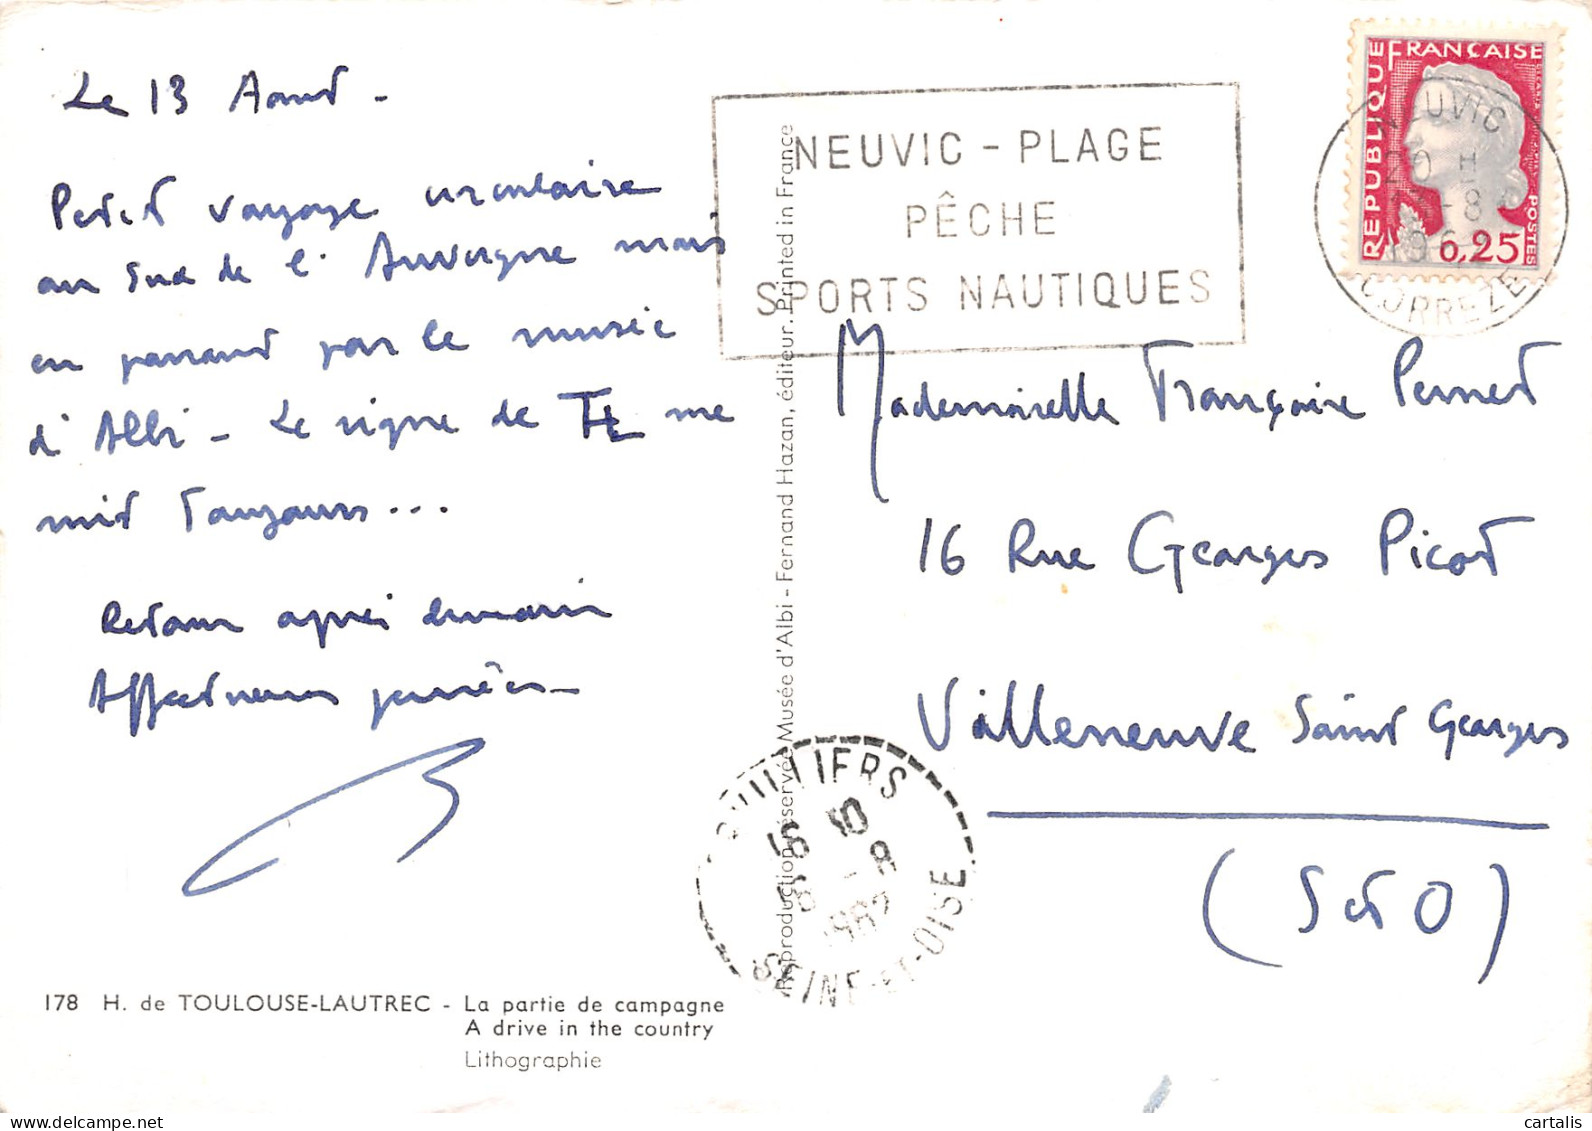 Le 13 Aout -
Petit voyage circulaire
au Sud de l'Auvergne mais
en passant par le musée
d'Albi - Le signe de TL me
suit Toujours...
Retour après demain
Affectueuses pensées -
178 H. de TOULOUSE-LAUTREC - La partie de campagne
A drive in the country
Lithographie
Reproduction réservée Musée d'Albi - Fernand Hazan, éditeur. Printed in France
NEUVIC - PLAGE
PÊCHE
SPORTS NAUTIQUES
REPUBLIQUE FRANÇAISE
POSTES
0,25
NEUVIC
20 H
-8
196
CORREZE
Mademoiselle Françoise Pernet
16 Rue Georges Picot
Villeneuve Saint Georges
(S et O)
16 30
-8
1962
SEINE-ET-OISE
cartalis